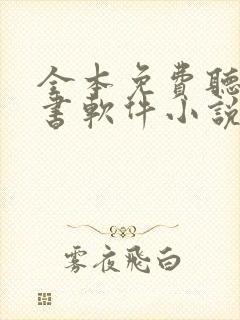 全本免費聽
書軟件小說
雾夜飛白